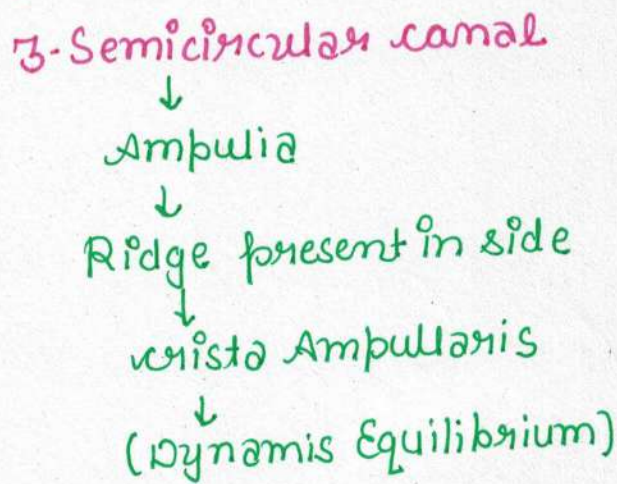 3-Semicircular canal
↓
Ampulia
↓
Ridge present in side
↓
crista Ampullaris
↓
(Dynamis Equilibrium)